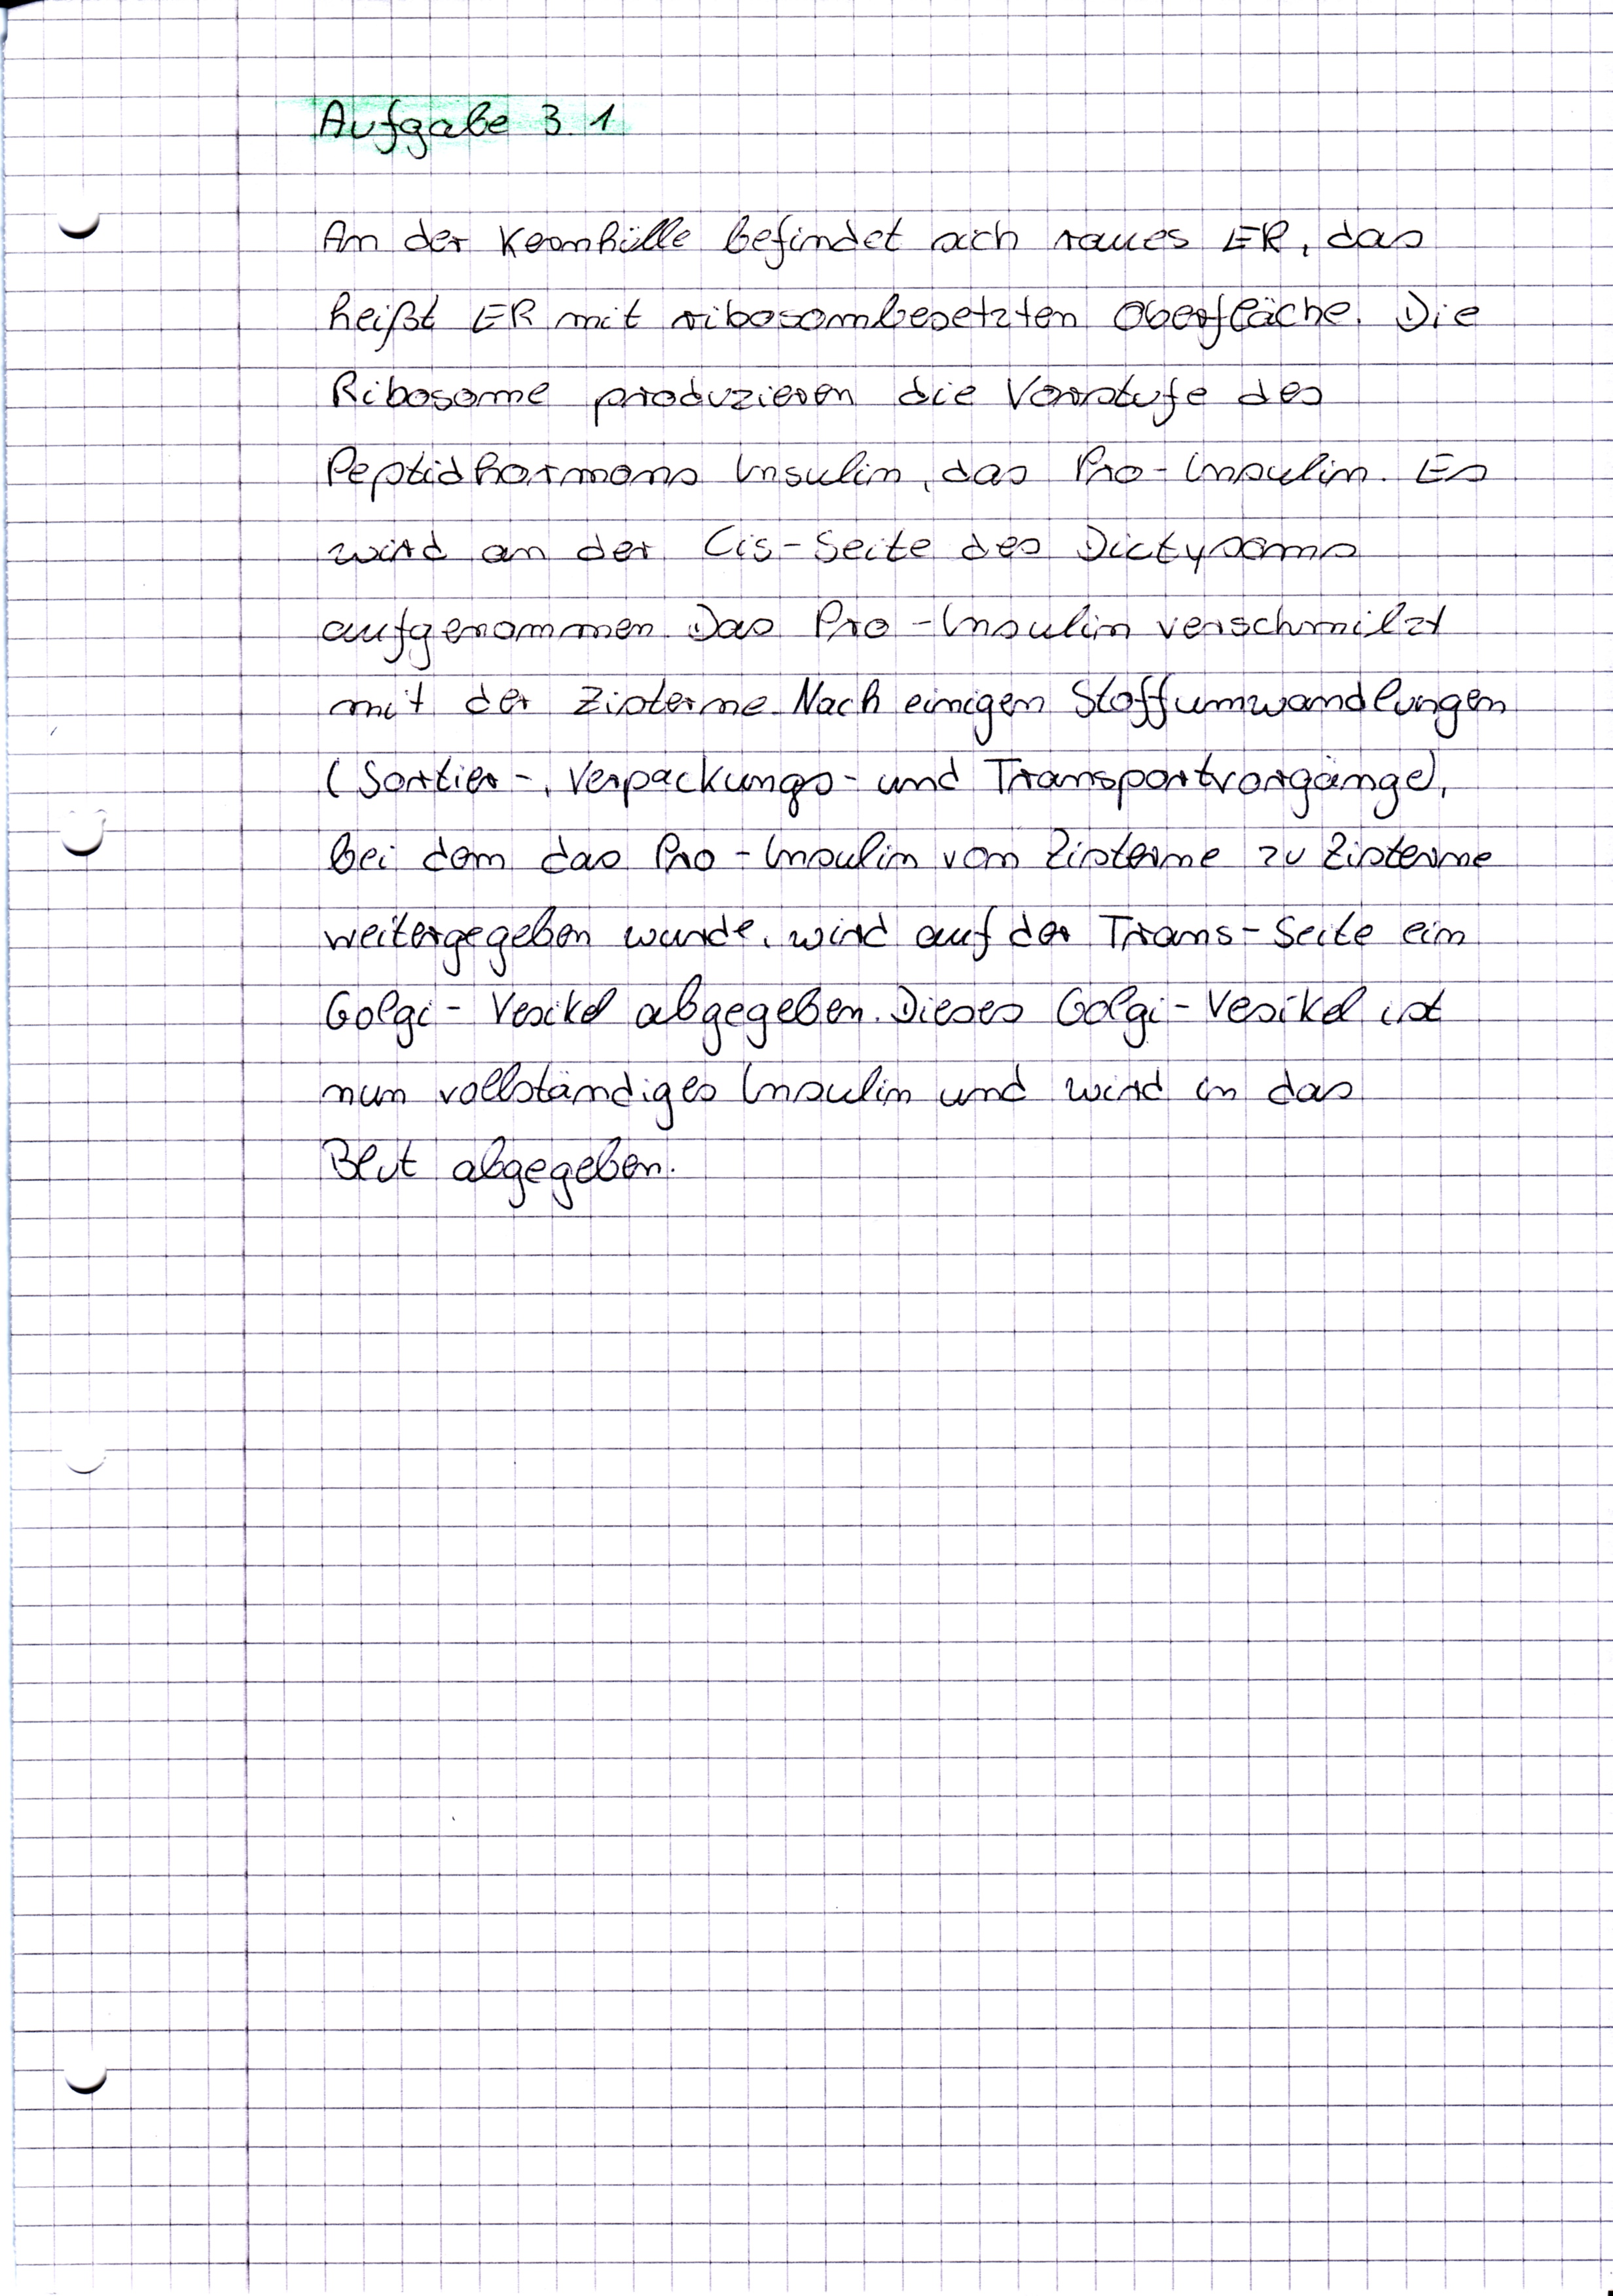 Aufgabe 3.1
An der Kernhülle befindet sich raues ER, das
heißt ER mit ribosombesetzten Oberfläche. Die
Ribosome produzieren die Vorstufe des
Peptidhormons Insulin, das Pro-Insulin. Es
wird an der Cis-Seite des Dictysoms
aufgenommen. Das Pro-Insulin verschmilzt
mit der Zisterne. Nach einigen Stoffumwandlungen
(Sortier-, Verpackungs- und Transportvorgänge),
bei dem das Pro-Insulin von Zisterne zu Zisterne
weitergegeben wurde, wird auf der Trans-Seite ein
Golgi-Vesikel abgegeben. Dieses Golgi-Vesikel ist
nun vollständiges Insulin und wird in das
Blut abgegeben.